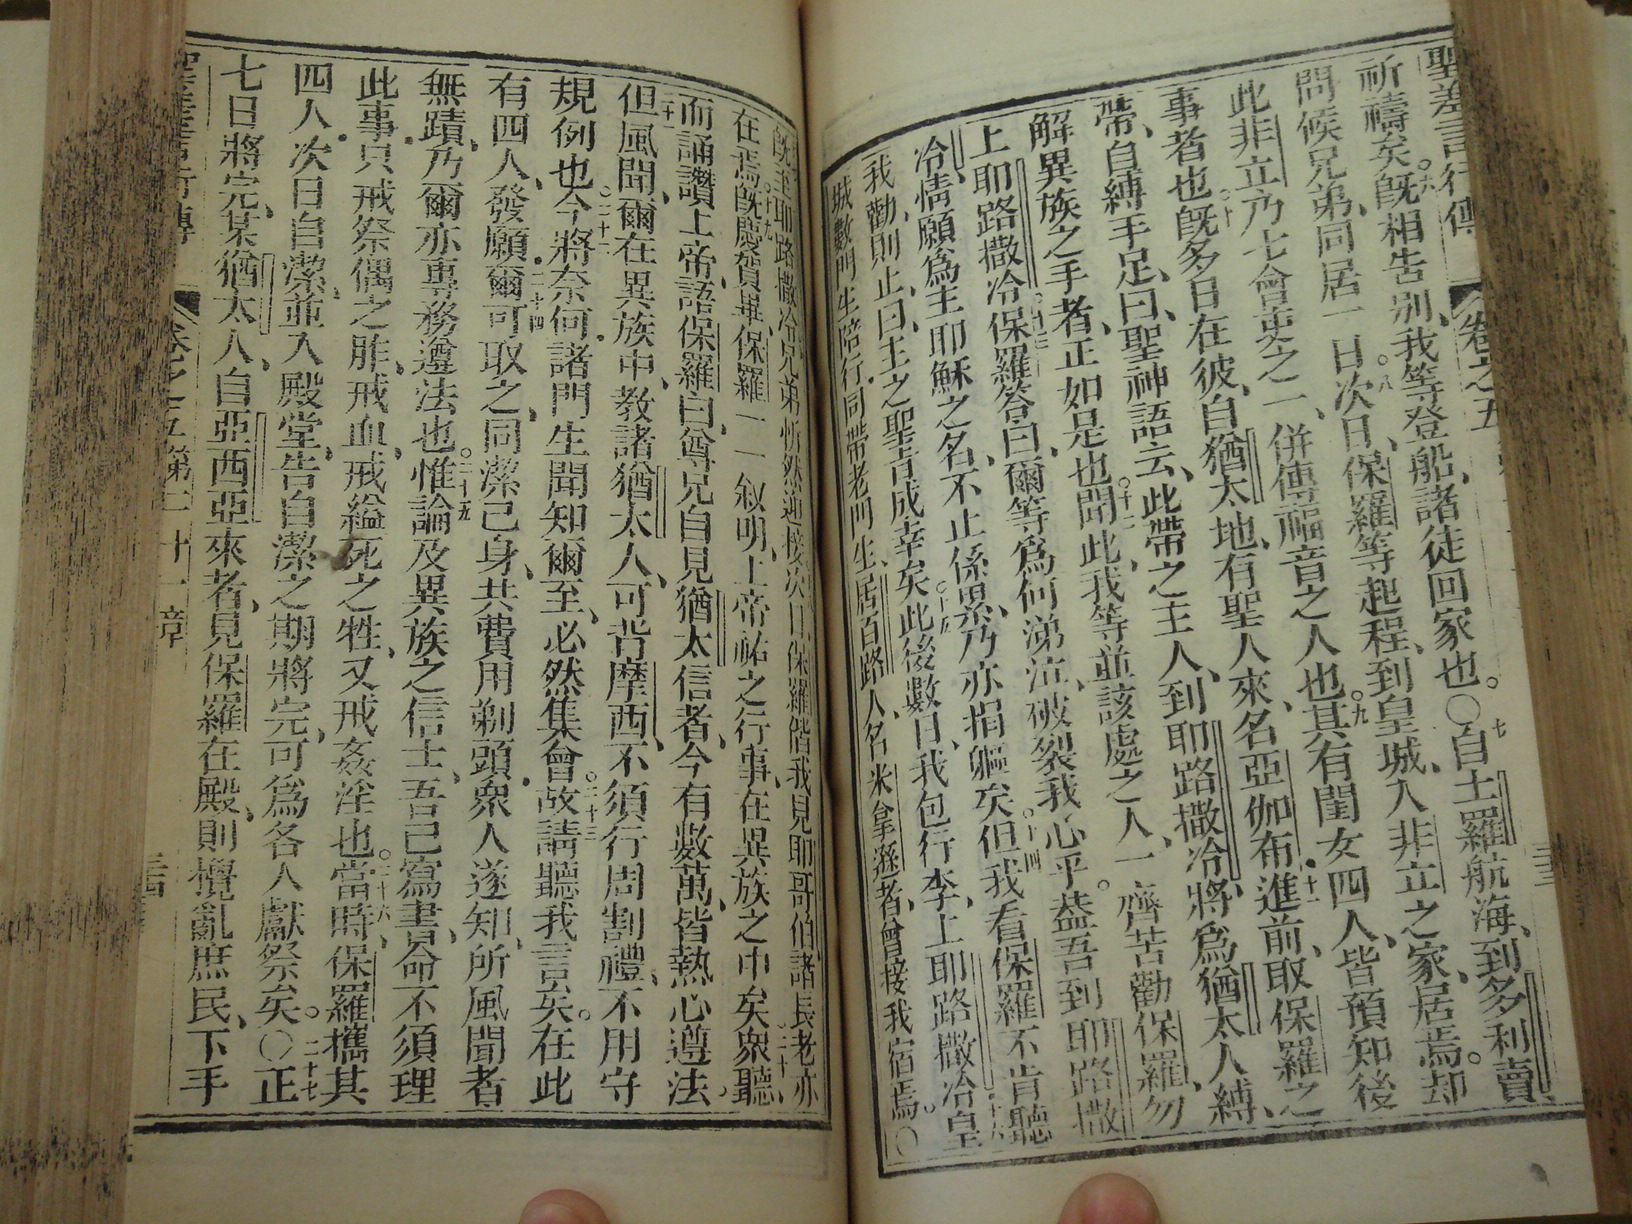 聖差言行傳 卷之五
祈禱矣。既相告別、我等登船、諸徒回家也。〇七自土羅航海、到多利賣
問候兄弟、同居一日。八次日、保羅等起程、到皇城、入非立之家、居焉。却
此非立乃七會吏之一、併傳福音之人也。九其有閨女四人、皆預知後
事者也。十既多日在彼、自猶太地、有聖人來、名亞伽布。十一進前、取保羅之
帶、自縛手足、曰、聖神語云、此帶之主人、到耶路撒冷、將爲猶太人縛、
解異族之手者、正如是也。十二聞此、我等並該處之人、一齊苦勸保羅、勿
上耶路撒冷。十三保羅答曰、爾等爲何涕泣、破裂我心乎。葢吾到耶路撒
冷、情願爲主耶穌之名、不止係累、乃亦捐軀矣。十四但我看保羅不肯聽
我勸、則止、曰、主之聖旨成幸矣。十五此後數日、我包行李、上耶路撒冷皇
城。十六數門生陪行、同帶老門生、居百路人、名米拿遜者、曾接我宿焉。〇
既至耶路撒冷、兄弟忻然迎接。次日、保羅偕我見耶哥伯、諸長老亦
在焉。十九既慶賀畢、保羅一一敘明、上帝祐之行事、在異族之中矣。二十衆聽、
而誦讚上帝、語保羅曰、尊兄自見猶太信者、今有數萬、皆熱心遵法。
二十一但風聞、爾在異族中、教諸猶太人、可背摩西、不須行周割禮、不用守
規例也。二十二今將奈何、諸門生聞知爾至、必然集會。二十三故請聽我言矣。在此
有四人、發願。二十四爾可取之、同潔己身、共費用剃頭、衆人遂知、所風聞者
無蹟、乃爾亦專務遵法也。二十五惟論及異族之信士、吾已寫書、命不須理
此事、只戒祭偶之胙、戒血、戒縊死之牲、又戒姦淫也。二十六當時、保羅攜其
四人、次日自潔、並入殿堂、告自潔之期將完、可爲各人獻祭矣。〇二十七正
七日將完、某猶太人、自亞西亞來者、見保羅在殿、則攪亂庶民、下手
卷之五 第二十一章